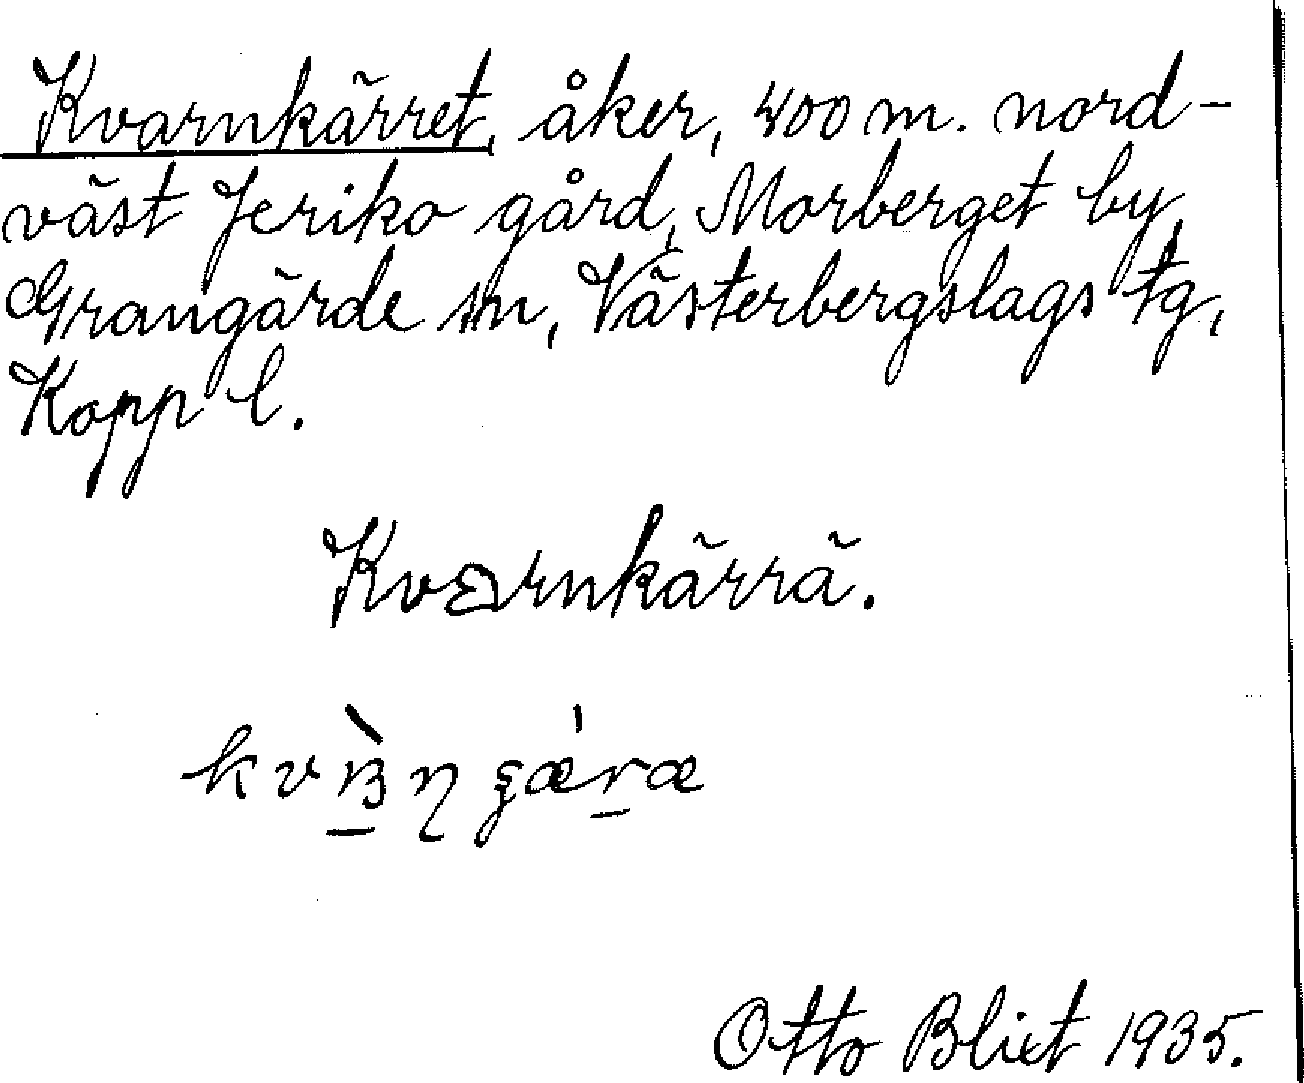 Kvarnkärret, åker, 400 m. nord-
väst Jeriko gård, Morberget by,
Grangärde sn, Västerbergslags tg,
Kopp l.
Kvarnkärrä.
Otto Blixt 1935.